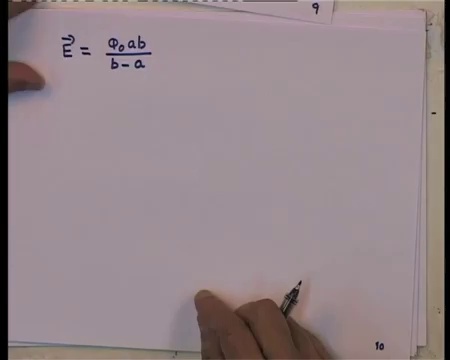 9
E⃗ = φ₀ab / b - a
10